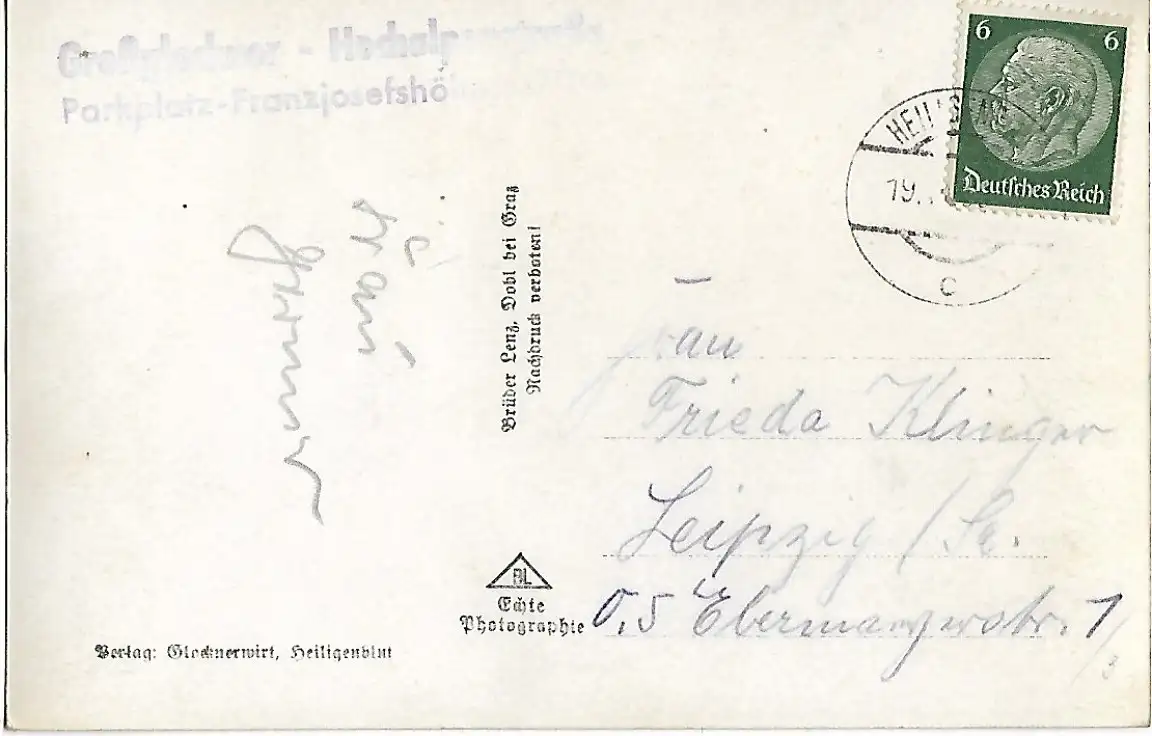 Großglockner - Hochalpenstraße
Parkplatz-Franzjosefshöhe
6 6
Deutsches Reich
HEILIGENBL
19.
c
Brüder Lenz, Dobl bei Graz
Nachdruck verboten!
Frau
Frieda Klinger
Leipzig / Sa.
0,5
BL
Echte
Photographie
Verlag: Glocknerwirt, Heiligenblut